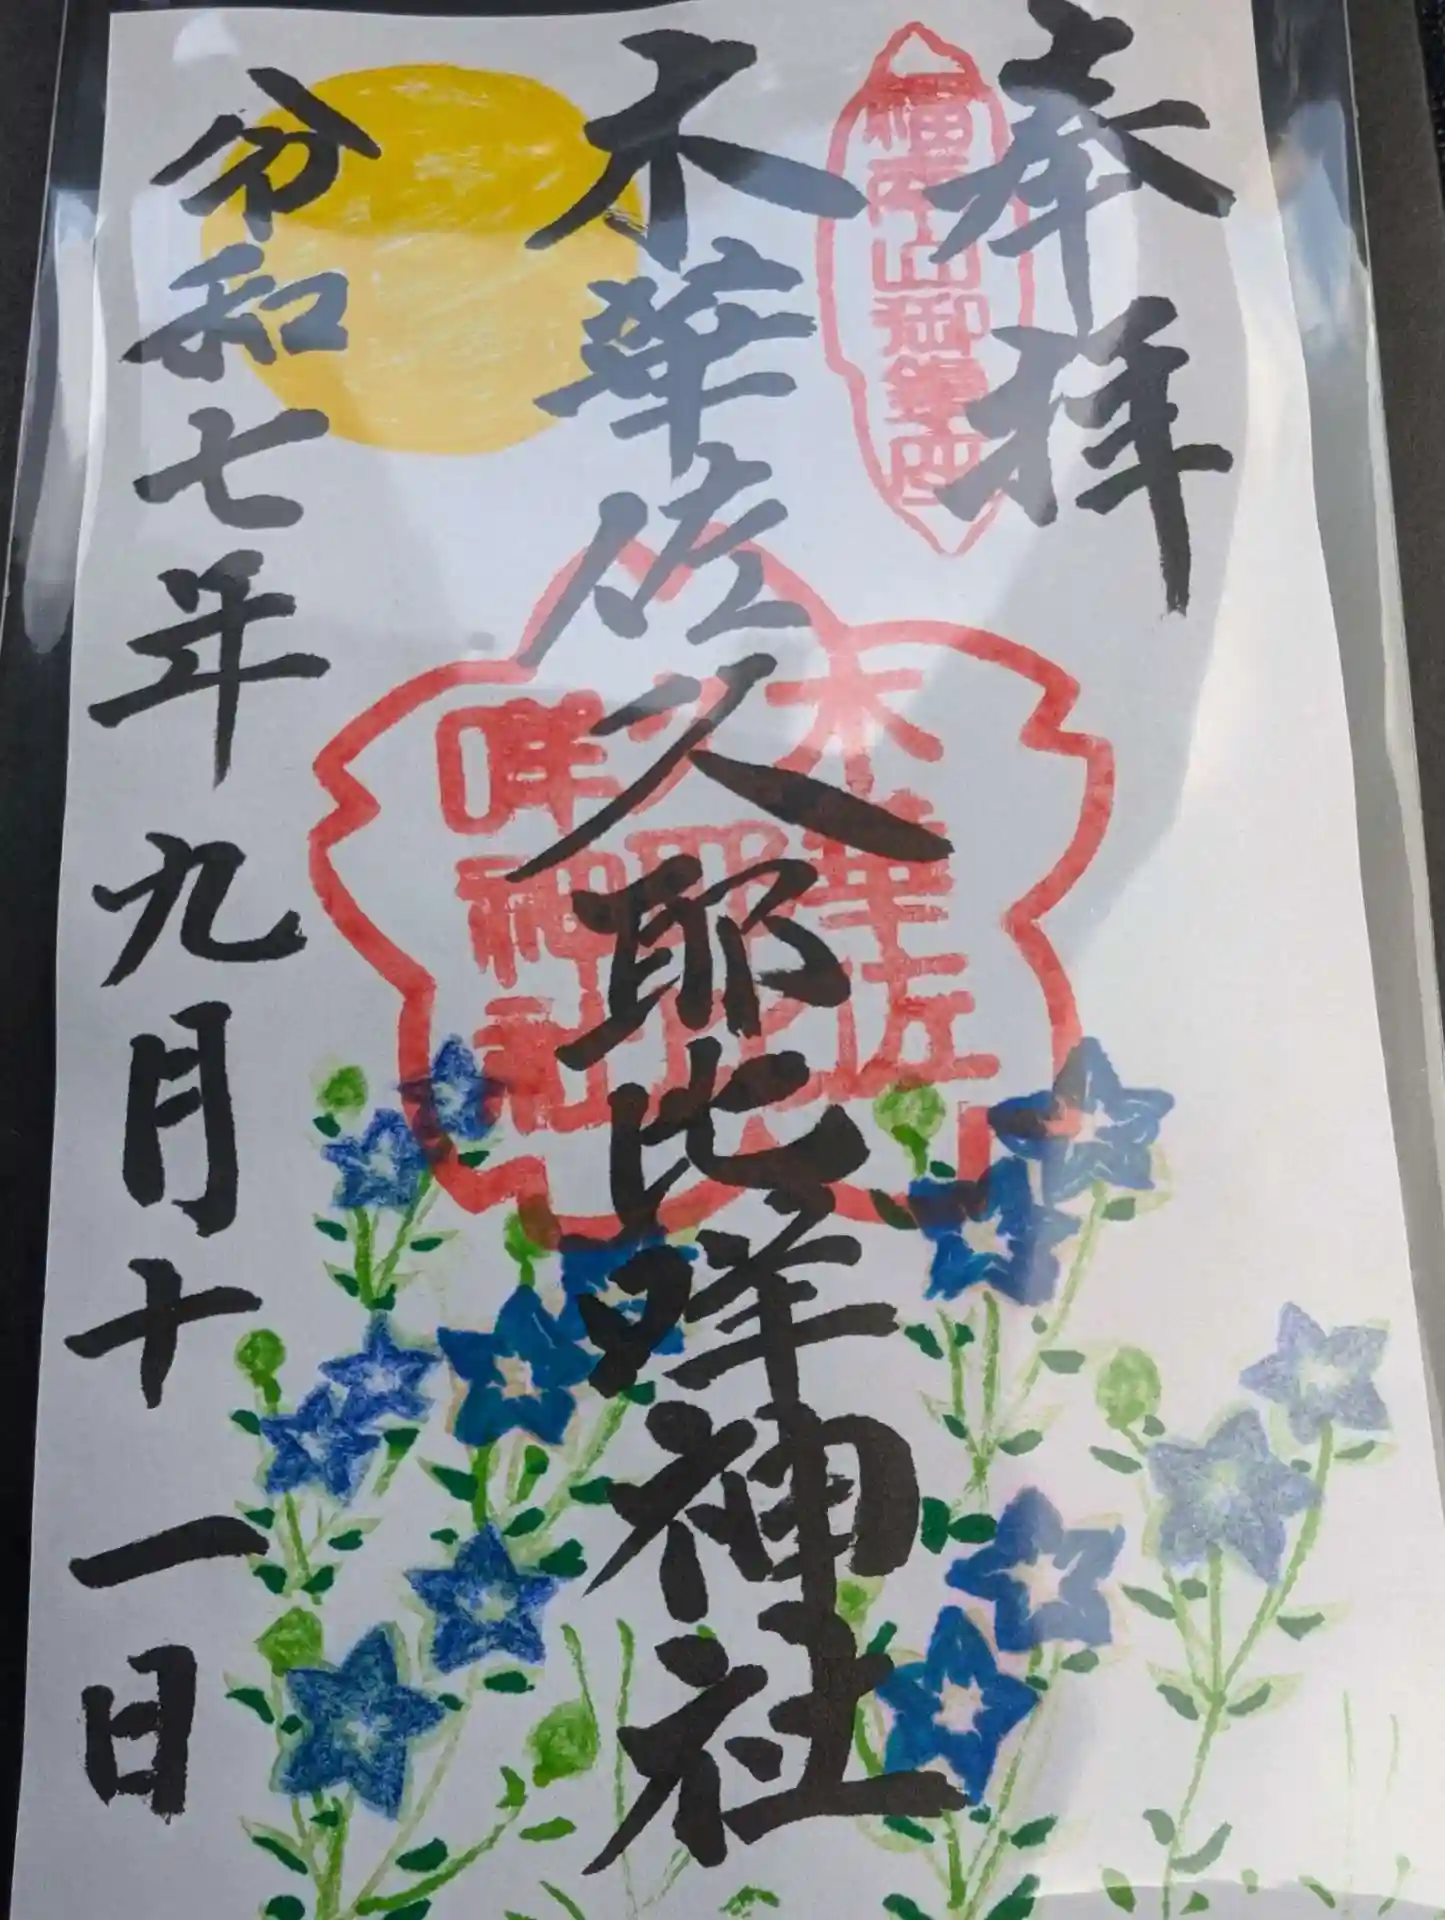 奉拝
福南山御鎮
木華佐久耶比咩神社
木華佐
久耶比
咩神社
令和七年九月十一日